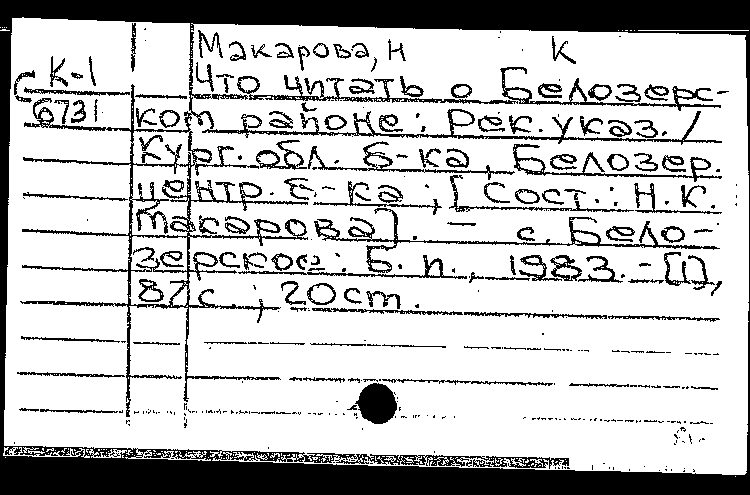 Макарова, Н К
К-1 Что читать о Белозерс-
6731 ком районе: Рек. указ. /
Кург. обл. б-ка, Белозер.
центр. б-ка ; [Сост.: Н. К.
Макарова]. — с. Бело-
зерское: Б. и., 1983. - [1],
87 с. ; 20 ст.